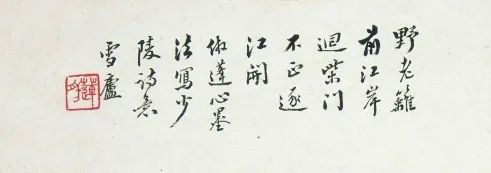 野老籬
前江岸
迴柴门
不正逐
江開
俶蓬心墨
法寫少
陵诗意
雪廬